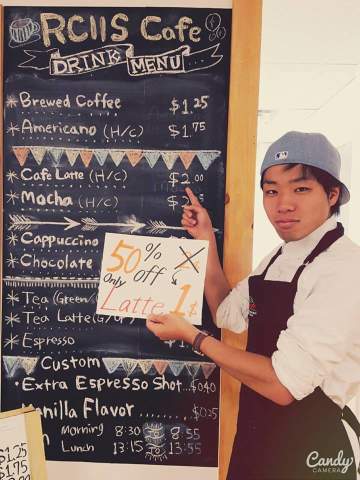 RCIIS Cafe
DRINK MENU
*Brewed Coffee $1.25
*Americano (H/c) $1.75
*Cafe Latte (H/C) $2.00
*Mocha (H/C)
*Cappuccino
*Chocolate
50% off
Only Latte 1¢
*Tea (Green
*Tea Latte (G/
*Espresso
Custom
Extra Espresso Shot...$0.40
Vanilla Flavor
Morning 8:30 8:55
Lunch 13:15 13:55
$1.25
$1.75
Candy
CAMERA